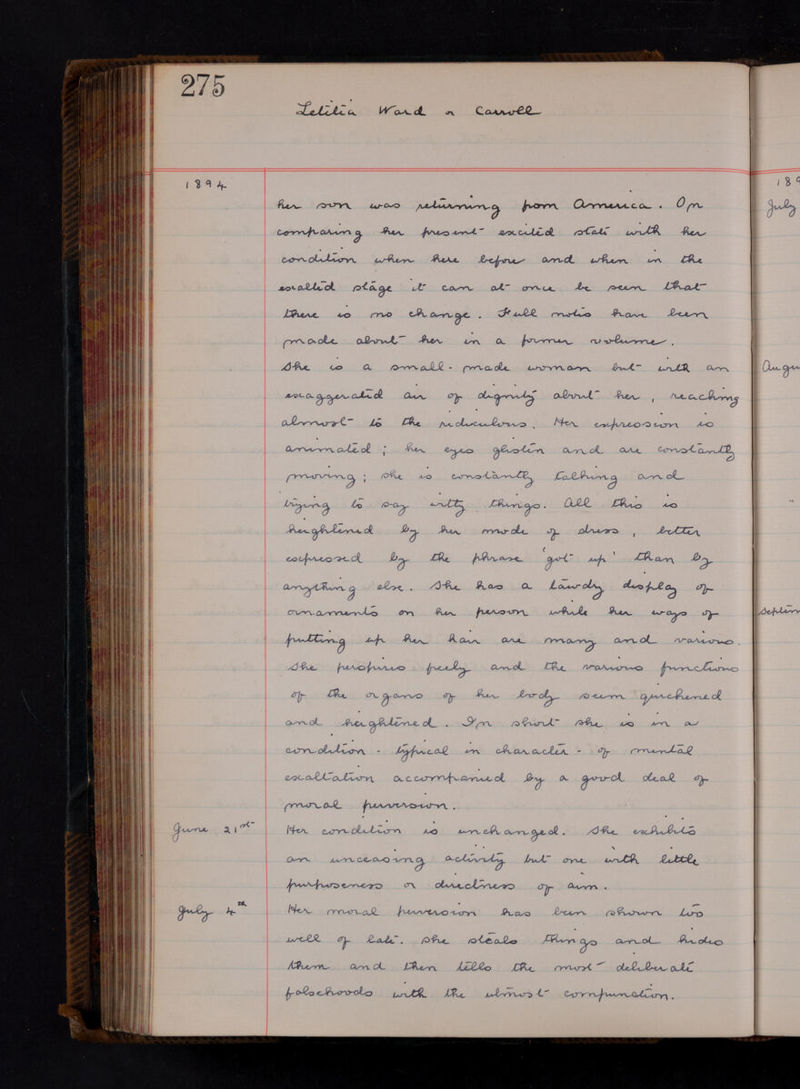 275
Letitia Ward or Carroll
1894
her son was returning from America. On
comparing her present excited state with her
condition when here before and when in the
exalted stage it can at once be seen that
there is no change. Full notes have been
made about her in a former volume.
She is a small-made woman but with an
exaggerated air of dignity about her, reaching
almost to the ridiculous. Her expression is
animated; her eyes glisten and are constantly
moving; she is constantly talking and
trying to say witty things. All this is
heightened by her mode of dress, better
expressed by the phrase 'got up' than by
anything else. She has a tawdry display of
ornaments on her person while her ways of
putting up her hair are many and various.
She perspires freely and the various functions
of the organs of her body seem quickened
and heightened. In short she is in a
condition - typical in character - of mental
exaltation accompanied by a good deal of
moral perversion.
June 21st Her condition is unchanged. She exhibits
an unceasing activity but one with little
purposeness or directness of aim.
July 4th Her moral perversion has been shown too
well of late. She steals things and hides
them and then tells the most deliberate
falsehoods with the utmost compunction.
189
July
Augu
Septem